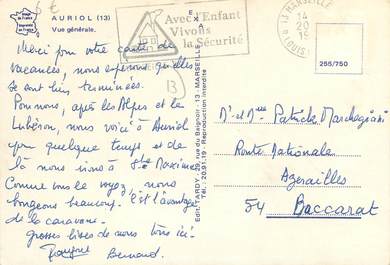 AURIOL (13)
Vue générale.
Merci pour votre carte de
vacances, nous espérons qu'elles
se sont bien terminées.
Pour nous, après les Alpes et le
Lubéron, nous voici à Auriol
pour quelque temps et de
là nous irons à Ste Maxime
Comme vous le voyez, nous
bougeons beaucoup. C'est l'avantage
de la caravane.
grosses bises de nous tous ici.
Bernard.
Edit. TARDY, 29, rue du Baignoir - 13 - MARSEILLE
20.91.19 - Reproduction interdite
Avec l'Enfant
Vivons
la Sécurité
13 MARSEILLE
14
20
19
255/750
B
Mr et Mme Patrick Marchegiani
Route Nationale
Azerailles
54 Baccarat